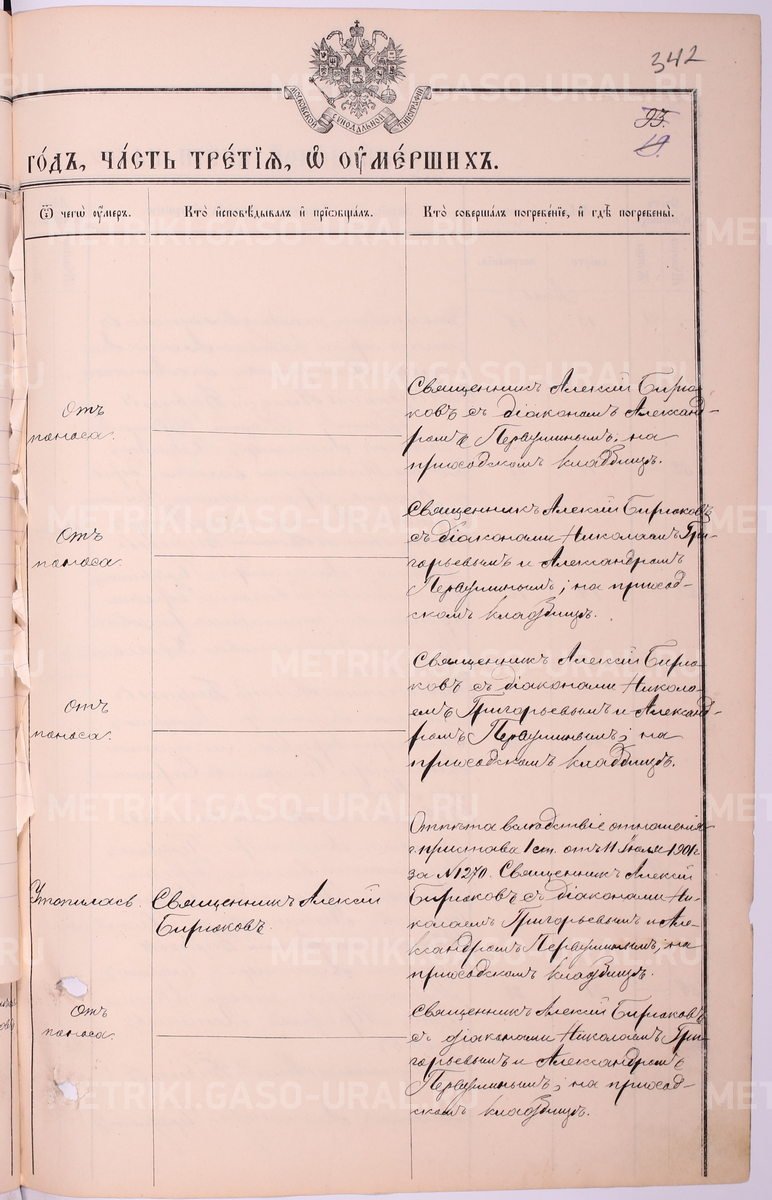 342
93.
19.
МОСКОВСКОЙ СИНОДАЛЬНОЙ ТИПОГРАФІИ
го́дъ, ча́сть тре́тїѧ, ѡ҆ ᲂу҆ме́ршихъ.
Ѿ чегѡ̀ ᲂу҆́меръ.
Кто̀ и҆сповѣ́дывалъ и҆ прїѡбща́лъ.
Кто̀ соверша́лъ погребе́нїе, и҆ гдѣ̀ погребены̀.
Отъ
поноса.
Священникъ Алексій Бирю-
ковъ съ діакономъ Александ-
ромъ Первушинымъ; на
приходскомъ кладбищѣ.
Отъ
поноса.
Священникъ Алексій Бирюковъ
съ діаконами Николаемъ Гри-
горьевымъ и Александромъ
Первушинымъ; на приход-
скомъ кладбищѣ.
Отъ
поноса.
Священникъ Алексій Бирю-
ковъ съ діаконами Никола-
емъ Григорьевымъ и Александ-
ромъ Первушинымъ; на
приходскомъ кладбищѣ.
Утопилась.
Священникъ Алексій
Бирюковъ.
Отпѣта вслѣдствіе отношенія
г. пристава 1 ст. отъ 11 Іюля 1901 г.
за №1270. Священникъ Алексій
Бирюковъ съ діаконами Ни-
колаемъ Григорьевымъ и Але-
ксандромъ Первушинымъ; на
приходскомъ кладбищѣ.
Отъ
поноса.
Священникъ Алексій Бирюковъ
съ діаконами Николаемъ Гри-
горьевымъ и Александромъ
Первушинымъ; на приход-
скомъ кладбищѣ.
METRIKI.GASO-URAL.RU